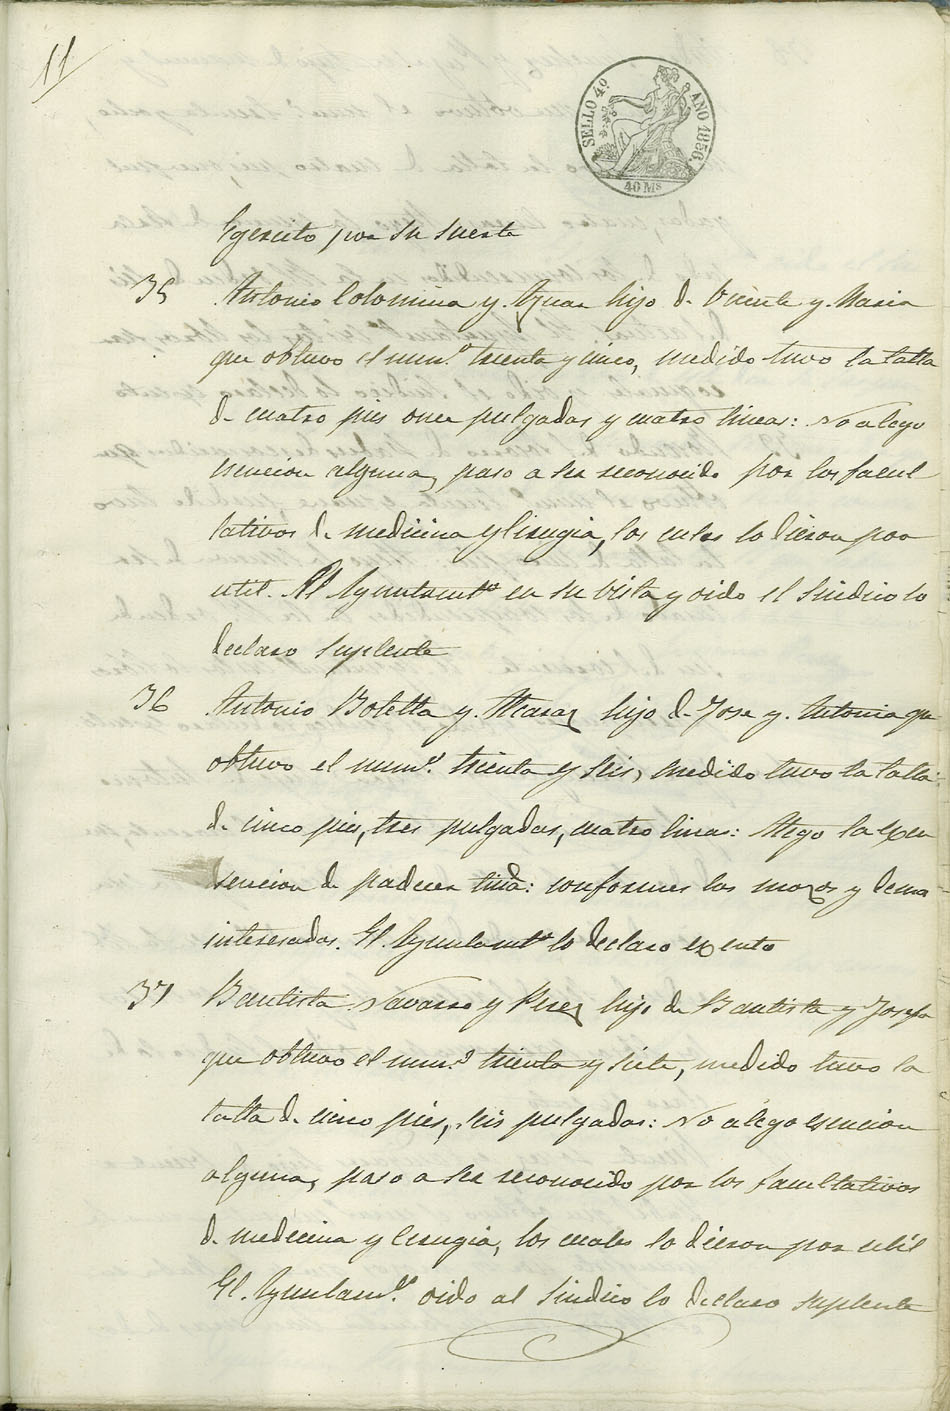 11
SELLO 4º AÑO 1856.
40 Ms
Egercito por su suerte
35 Antonio Colomina y Aznar hijo de Vicente y Maria
que obtuvo el numº treinta y cinco, medido tuvo la talla
de cuatro pies once pulgadas y cuatro lineas: No alego
esencion alguna, paso a ser reconocido por los facul
tativos de medicina y Cirugia, los cules lo dieron por
util. El Ayuntamtº en su vista y oido el Sindico lo
declaro suplente
36 Antonio Botella y Alcaraz hijo de Jose y Antonia que
obtuvo el numº. treinta y seis, medido tuvo la talla
de cinco pies, tres pulgadas, cuatro lineas: Alego la exen
sencion de padecer tiña: conformes los mozos y dema
interesados. El Ayuntamtº lo declaro exento
37 Bautista Navarro y Perez hijo de Bautista y Josefa
que obtuvo el numº treinta y siete, medido tuvo la
talla de cinco pies, seis pulgadas: No alego esencion
alguna, paso a ser reconocido por los facultativos
de medicina y Cirugia, los cuales lo dieron por util
El Ayuntamtº. oido al Sindico lo declaro suplente